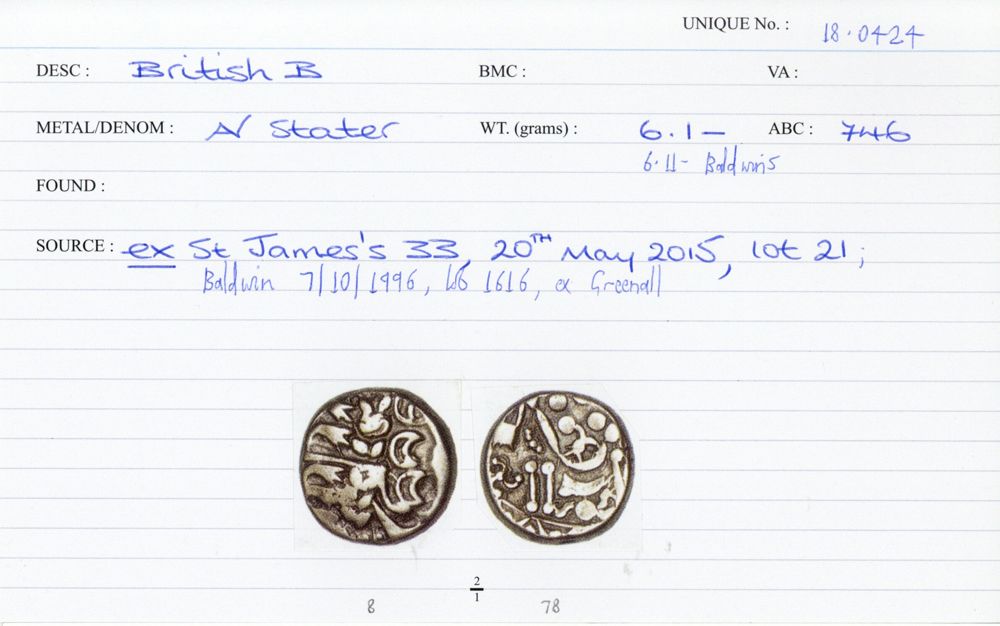 UNIQUE No. : 18.0424
DESC : British B BMC : VA :
METAL/DENOM : N Stater WT. (grams) : 6.1— ABC : 746
6.11- Baldwins
FOUND :
SOURCE : ex St James's 33, 20TH May 2015, lot 21;
Baldwin 7/10/1996, lot 1616, ex Greenall
2
1
8 78